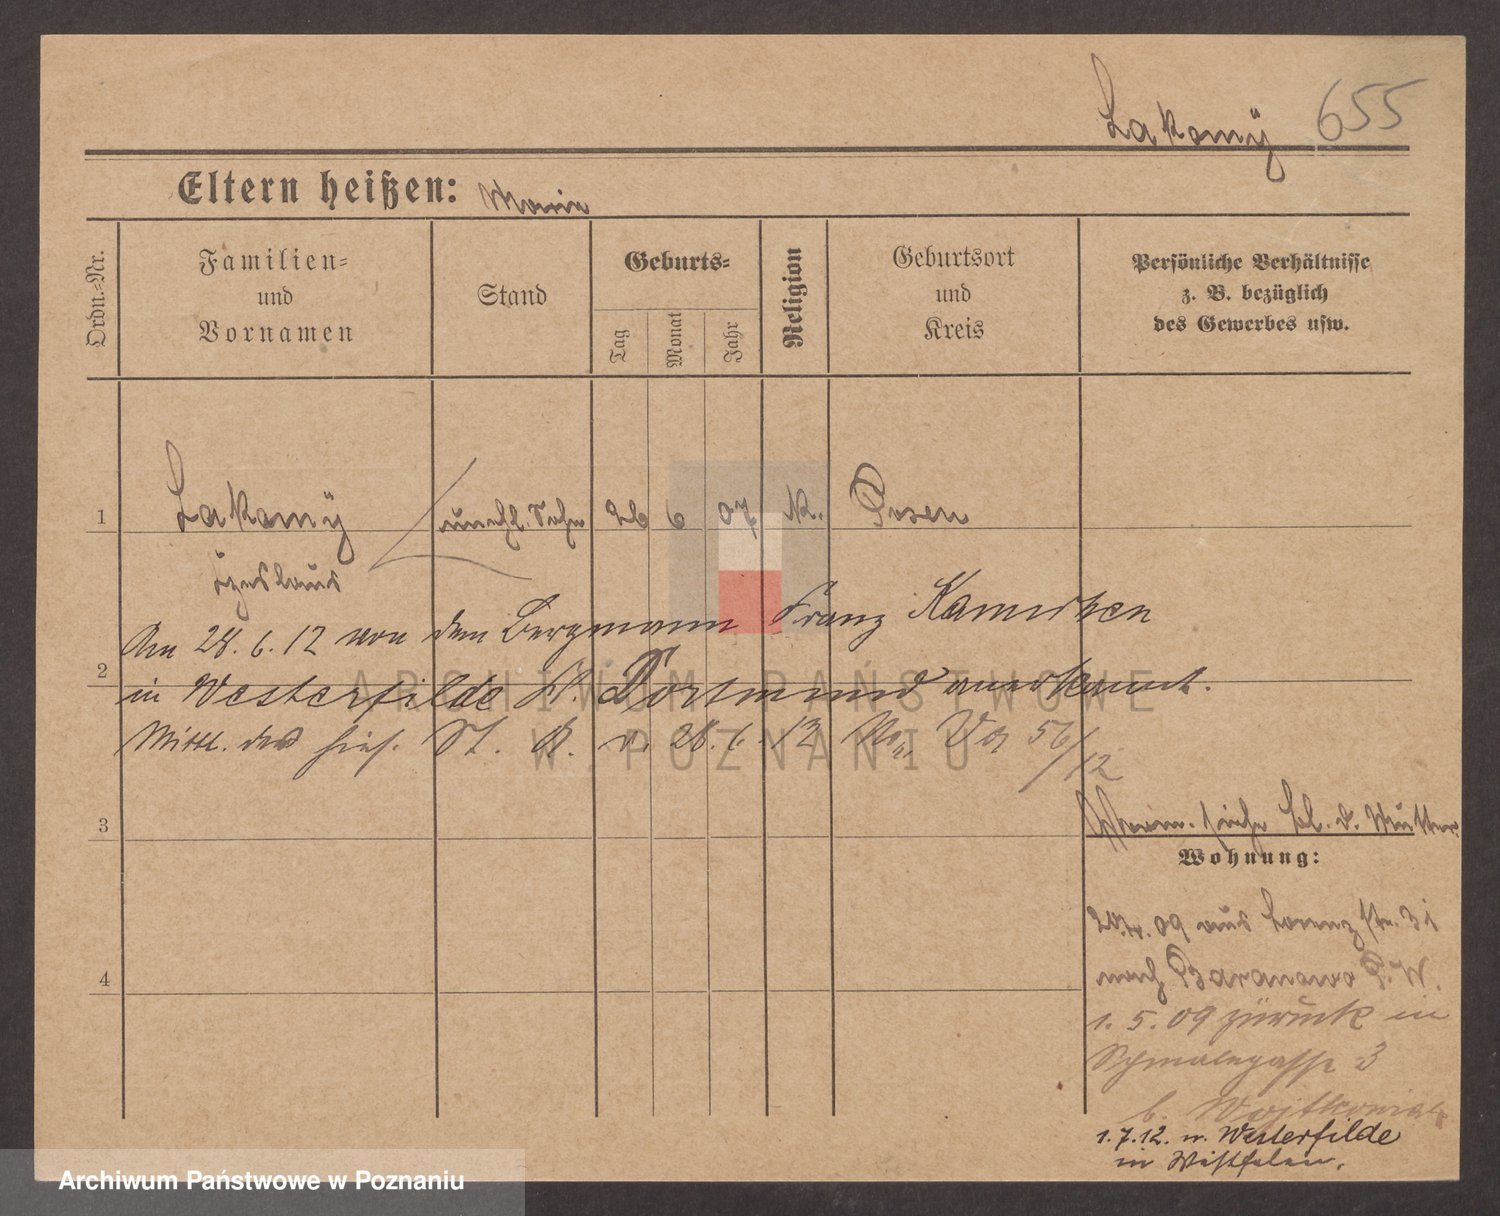 Lakomÿ 655
Eltern heißen: Marie
Ordn.-Nr.
Familien-
und
Vornamen
Stand
Geburts-
Tag
Monat
Jahr
Religion
Geburtsort
und
Kreis
Persönliche Verhältnisse
z. B. bezüglich
des Gewerbes usw.
1 Lakomÿ unehl. Sohn 26 6 07 K. Posen
Czeslaus
Am 28. 6. 12 von dem Bergmann Franz
2
in Westerfilde Kr. Dortmund anerkannt.
Mittl. des hies. St. A. v. 28. 6. 12 56/12
3
siehe bl. d. Mutter
Wohnung:
09 aus Lorenzstr. 31
4
nach Baranowo P. W.
1. 5. 09 zurück in
Schmalegasse 3
b.
1. 7. 12. n. Westerfilde
in Westfalen.
ARCHIWUM PAŃSTWOWE
W POZNANIU
Archiwum Państwowe w Poznaniu